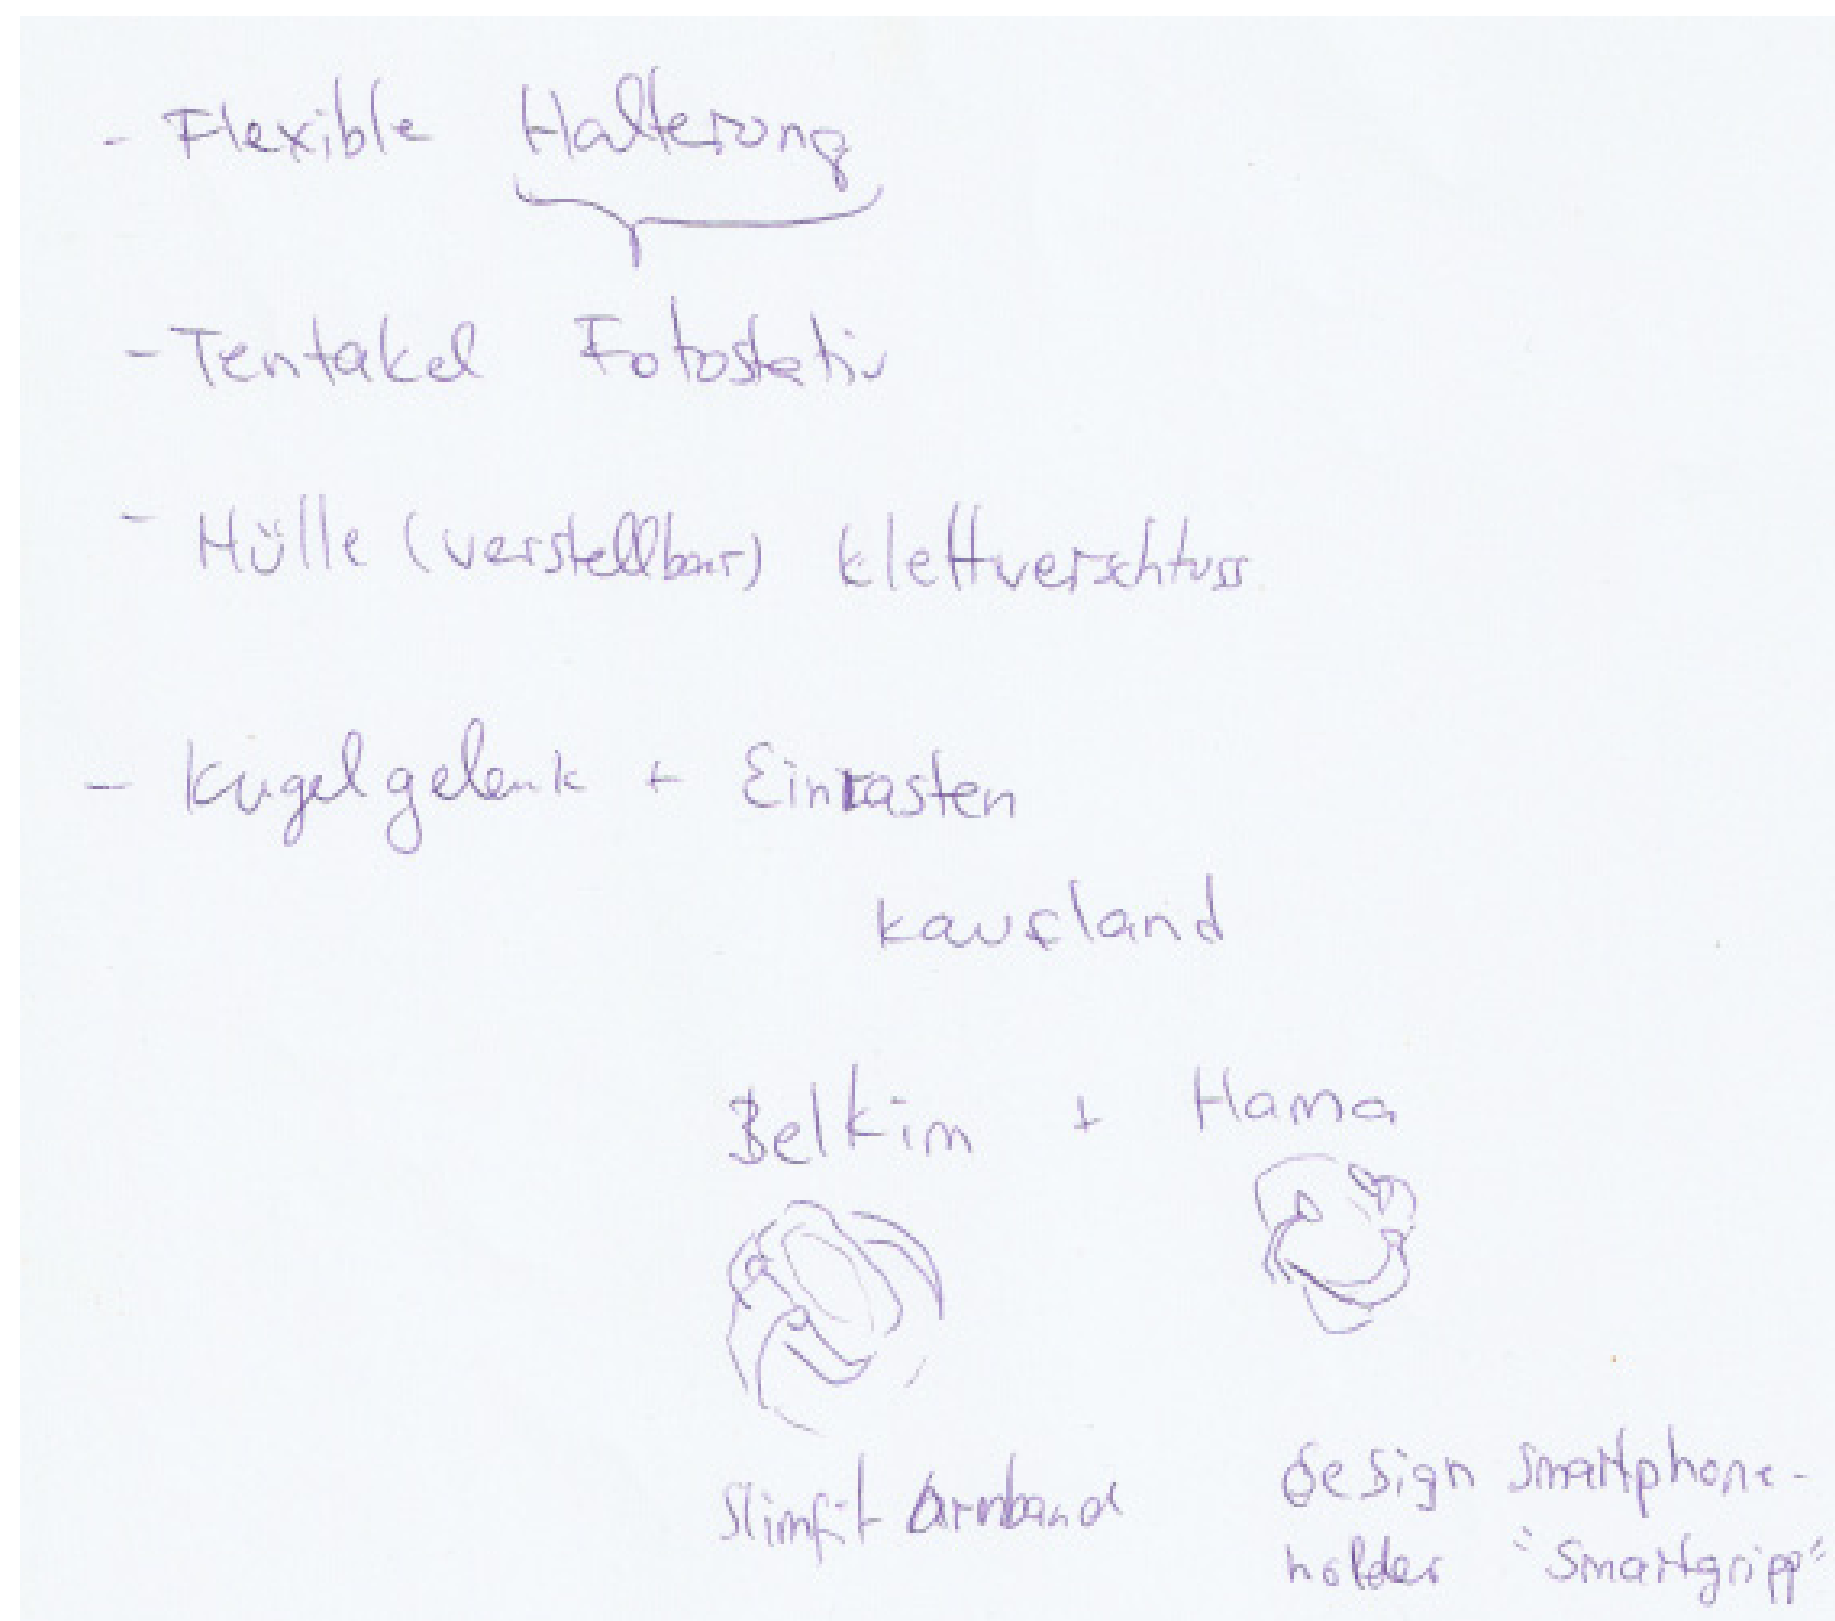 - Flexible Halterung
- Tentakel Fotostativ
- Hülle (verstellbar) Klettverschluss
- Kugelgelenk + Einrasten
Kaufland
Belkim + Hama
Slimfit Armband
Design Smartphone-
holder "Smartgripp"